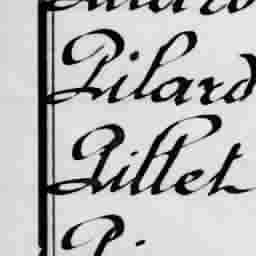 Pilard
Pillet